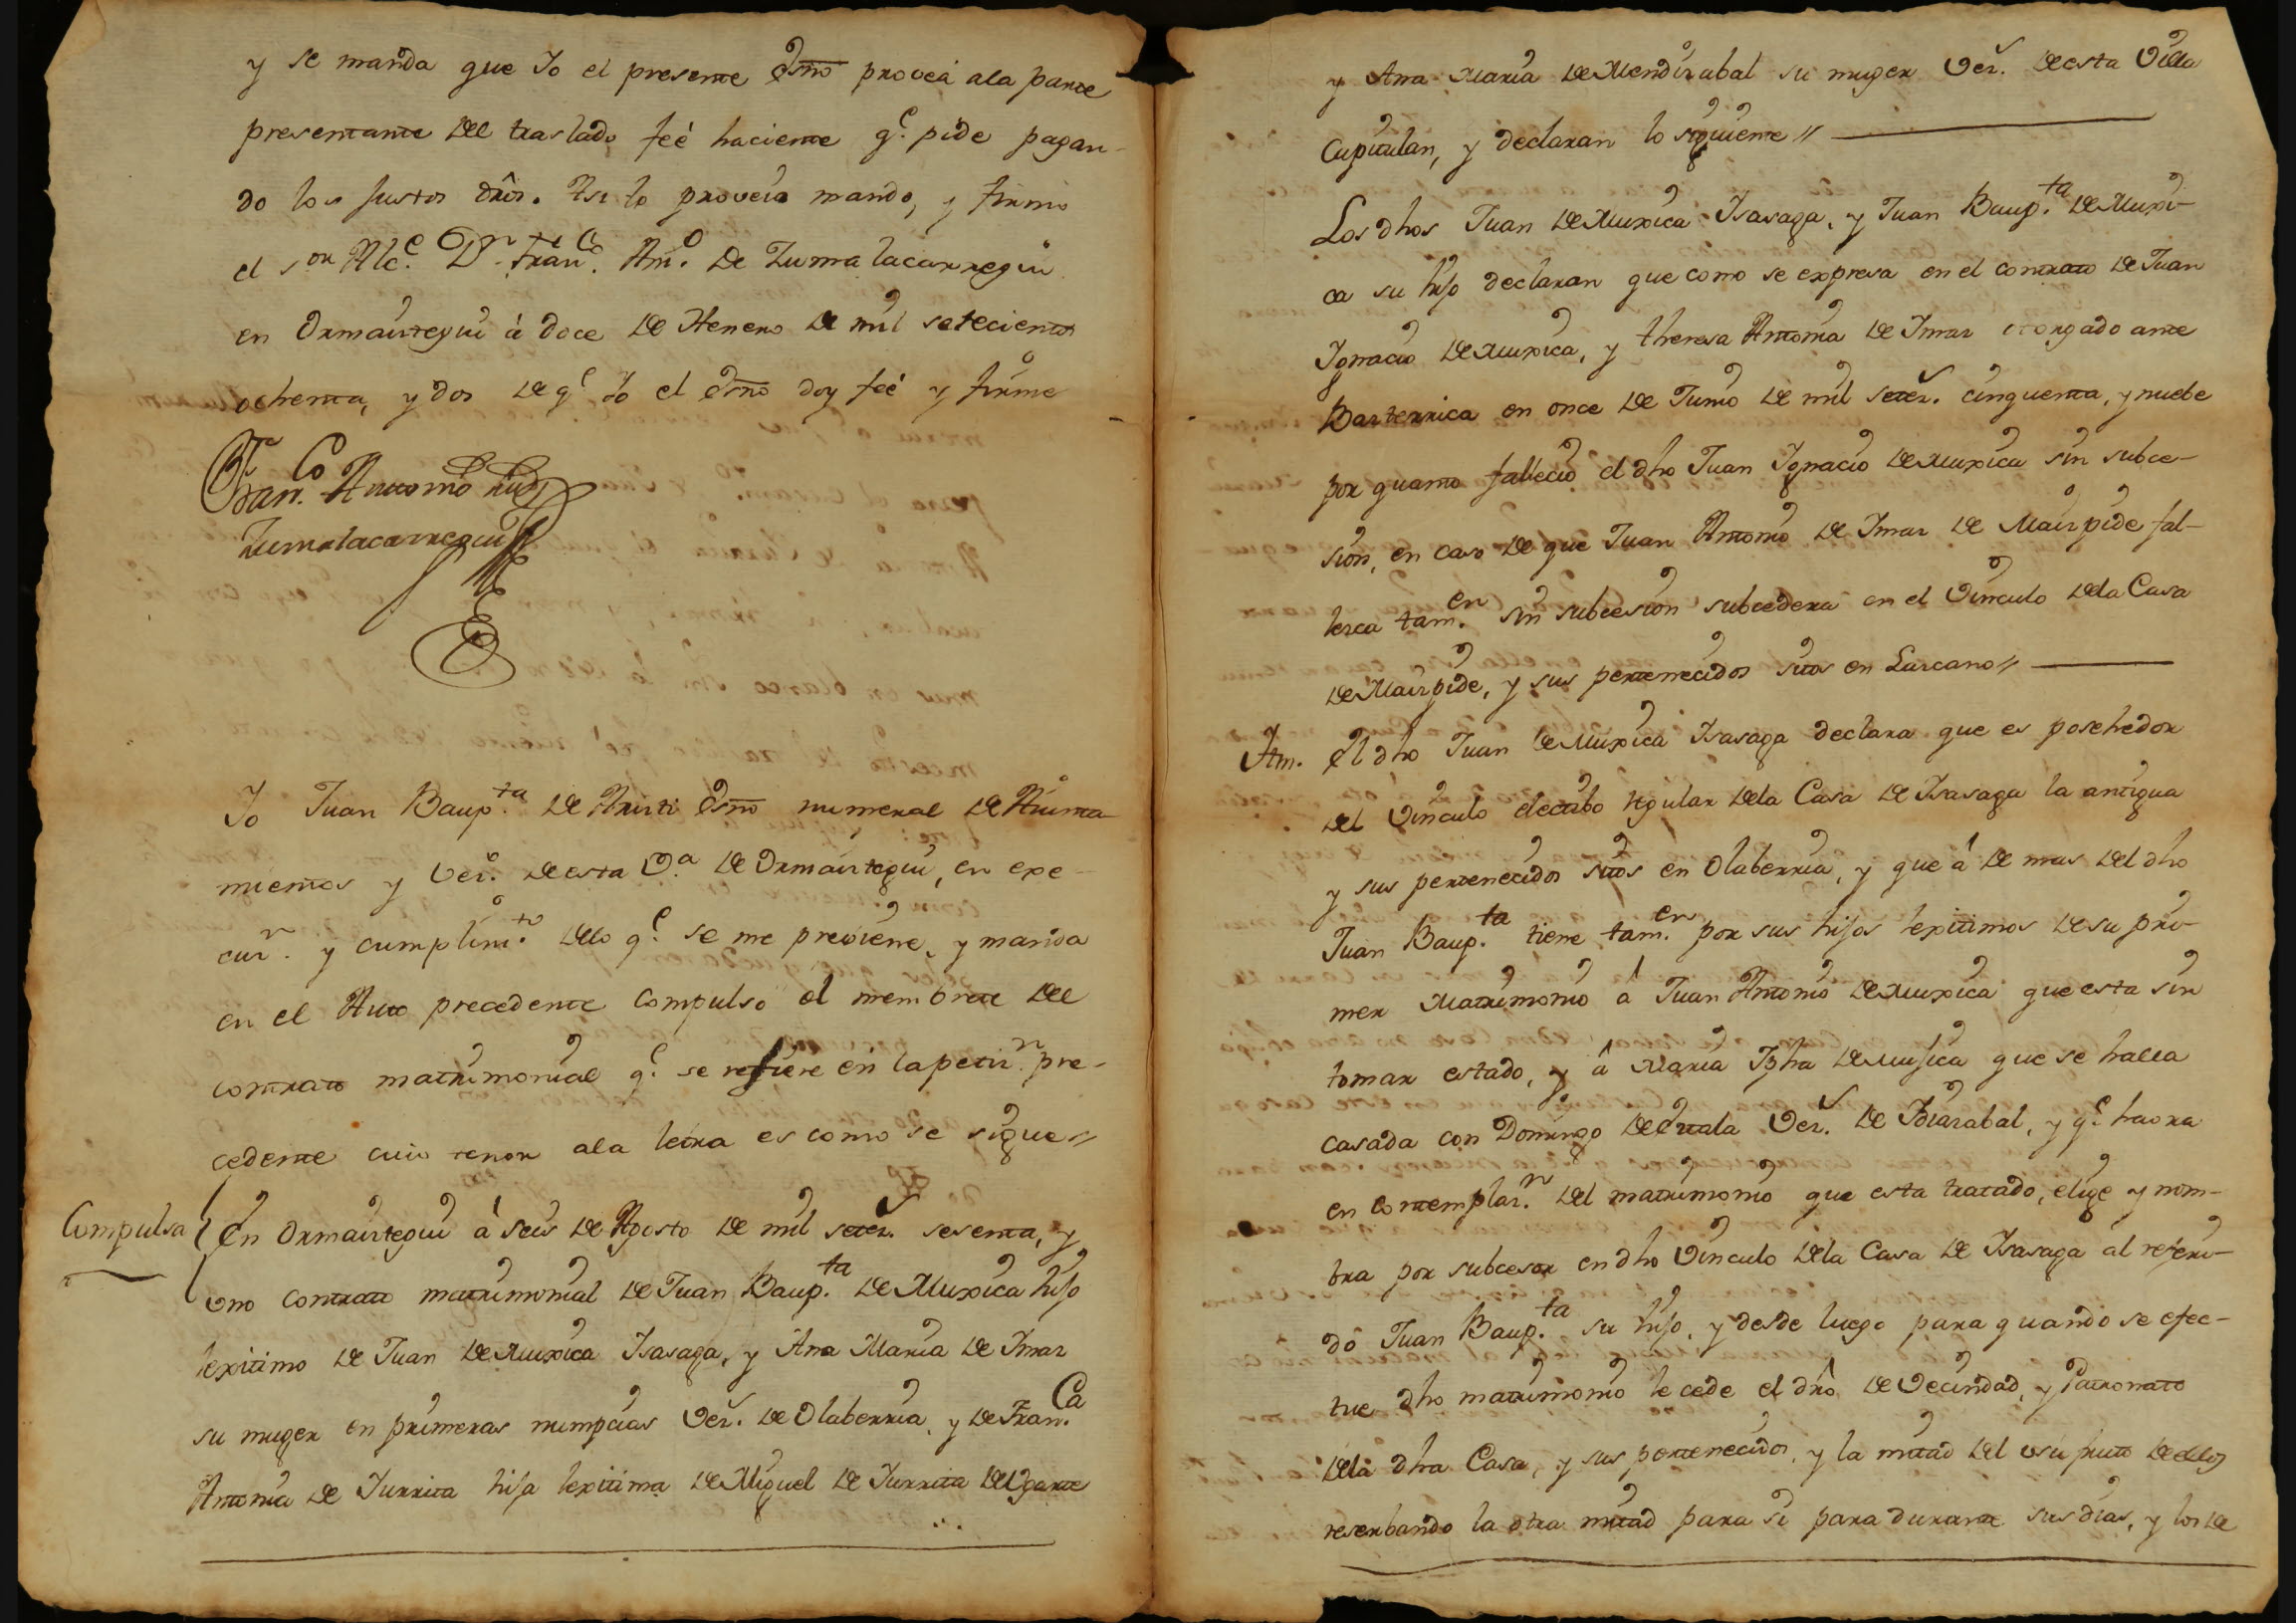 y se manda que Yo el presente Esno provea ala parte
presentante del traslado feé haciente q.e pide pagan-
do los justos dros. Asi lo proveio mando, y firmo
el s.or Alc.e D.n Fran.co Ant.o de Zumalacarregui
en Ormaiztegui á doce de Henero de mil setecientos
ochenta, y dos de q.e Yo el Esno doy feé y firme
Fran.co Antonio Ruiz
Zumalacarregui
Yo Juan Baup.ta de Aristi Esno numeral de Areria
mientos y vez.o de esta V.a de Ormaiztegui, en exe-
cuz.n y cumplim.to dello q.e se me previene, y manda
en el Auto precedente compulso el membrete del
contrato matrimonial q.e se refiere en la petiz.n pre-
cedente cuio tenor ala letra es como se sigue //
Compulsa En Ormaiztegui á seis de Agosto de mil setez.s sesenta, y
uno contrato matrimonial de Juan Baup.ta de Muxica hijo
lexitimo de Juan de Muxica Isasaga, y Ana Maria de Imaz
su muger en primeras numpcias vez.s de Olaberria, y de Fran.ca
Antonia de Iurrita hija lexitima de Miguel de Iurrita de Ugarte
y Ana Maria de Mendizabal su muger vez.s de esta Villa
Capitulan, y declaran lo siguiente //
Los dhos Juan de Muxica Isasaga, y Juan Baup.ta de Muxi-
ca su hijo declaran que como se expresa en el contrato de Juan
Ignacio de Muxica, y Theresa Antonia de Imaz otorgado ante
Barterrica en once de Junio de mil setez.s cinquenta, y nuebe
por quanto fallecio el dho Juan Ignacio de Muxica sin subce-
sion, en caso de que Juan Antonio de Imaz de Maizpide fal-
lezca tam.en sin subcesion subcedera en el Vinculo dela Casa
de Maizpide, y sus pertenecidos sitos en Lazcano //
Itm. El dho Juan de Muxica Isasaga declara que es posehedor
del Vinculo electibo regular dela Casa de Isasaga la antigua
y sus pertenecidos sitos en Olaberria, y que á de mas del dho
Juan Baup.ta tiene tam.en por sus hijos lexitimos de su pri-
mer Matrimonio á Juan Antonio de Muxica que esta sin
tomar estado, y á Maria Jpha de Mujica que se halla
casada con Domingo de Eztala vez.s de Idiazabal, y q.e haora
en contemplaz.n del matrimonio que esta tratado, elige y nom-
bra por subcesor en dho Vinculo dela Casa de Isasaga al referi-
do Juan Baup.ta su hijo, y desde luego para quando se efec-
tue dho matrimonio le cede el dro de Vecindad, y Patronato
dela dha Casa, y sus pertenecidos, y la mitad del usufruto de ellos
reserbando la otra mitad para si para durante sus dias, y los de